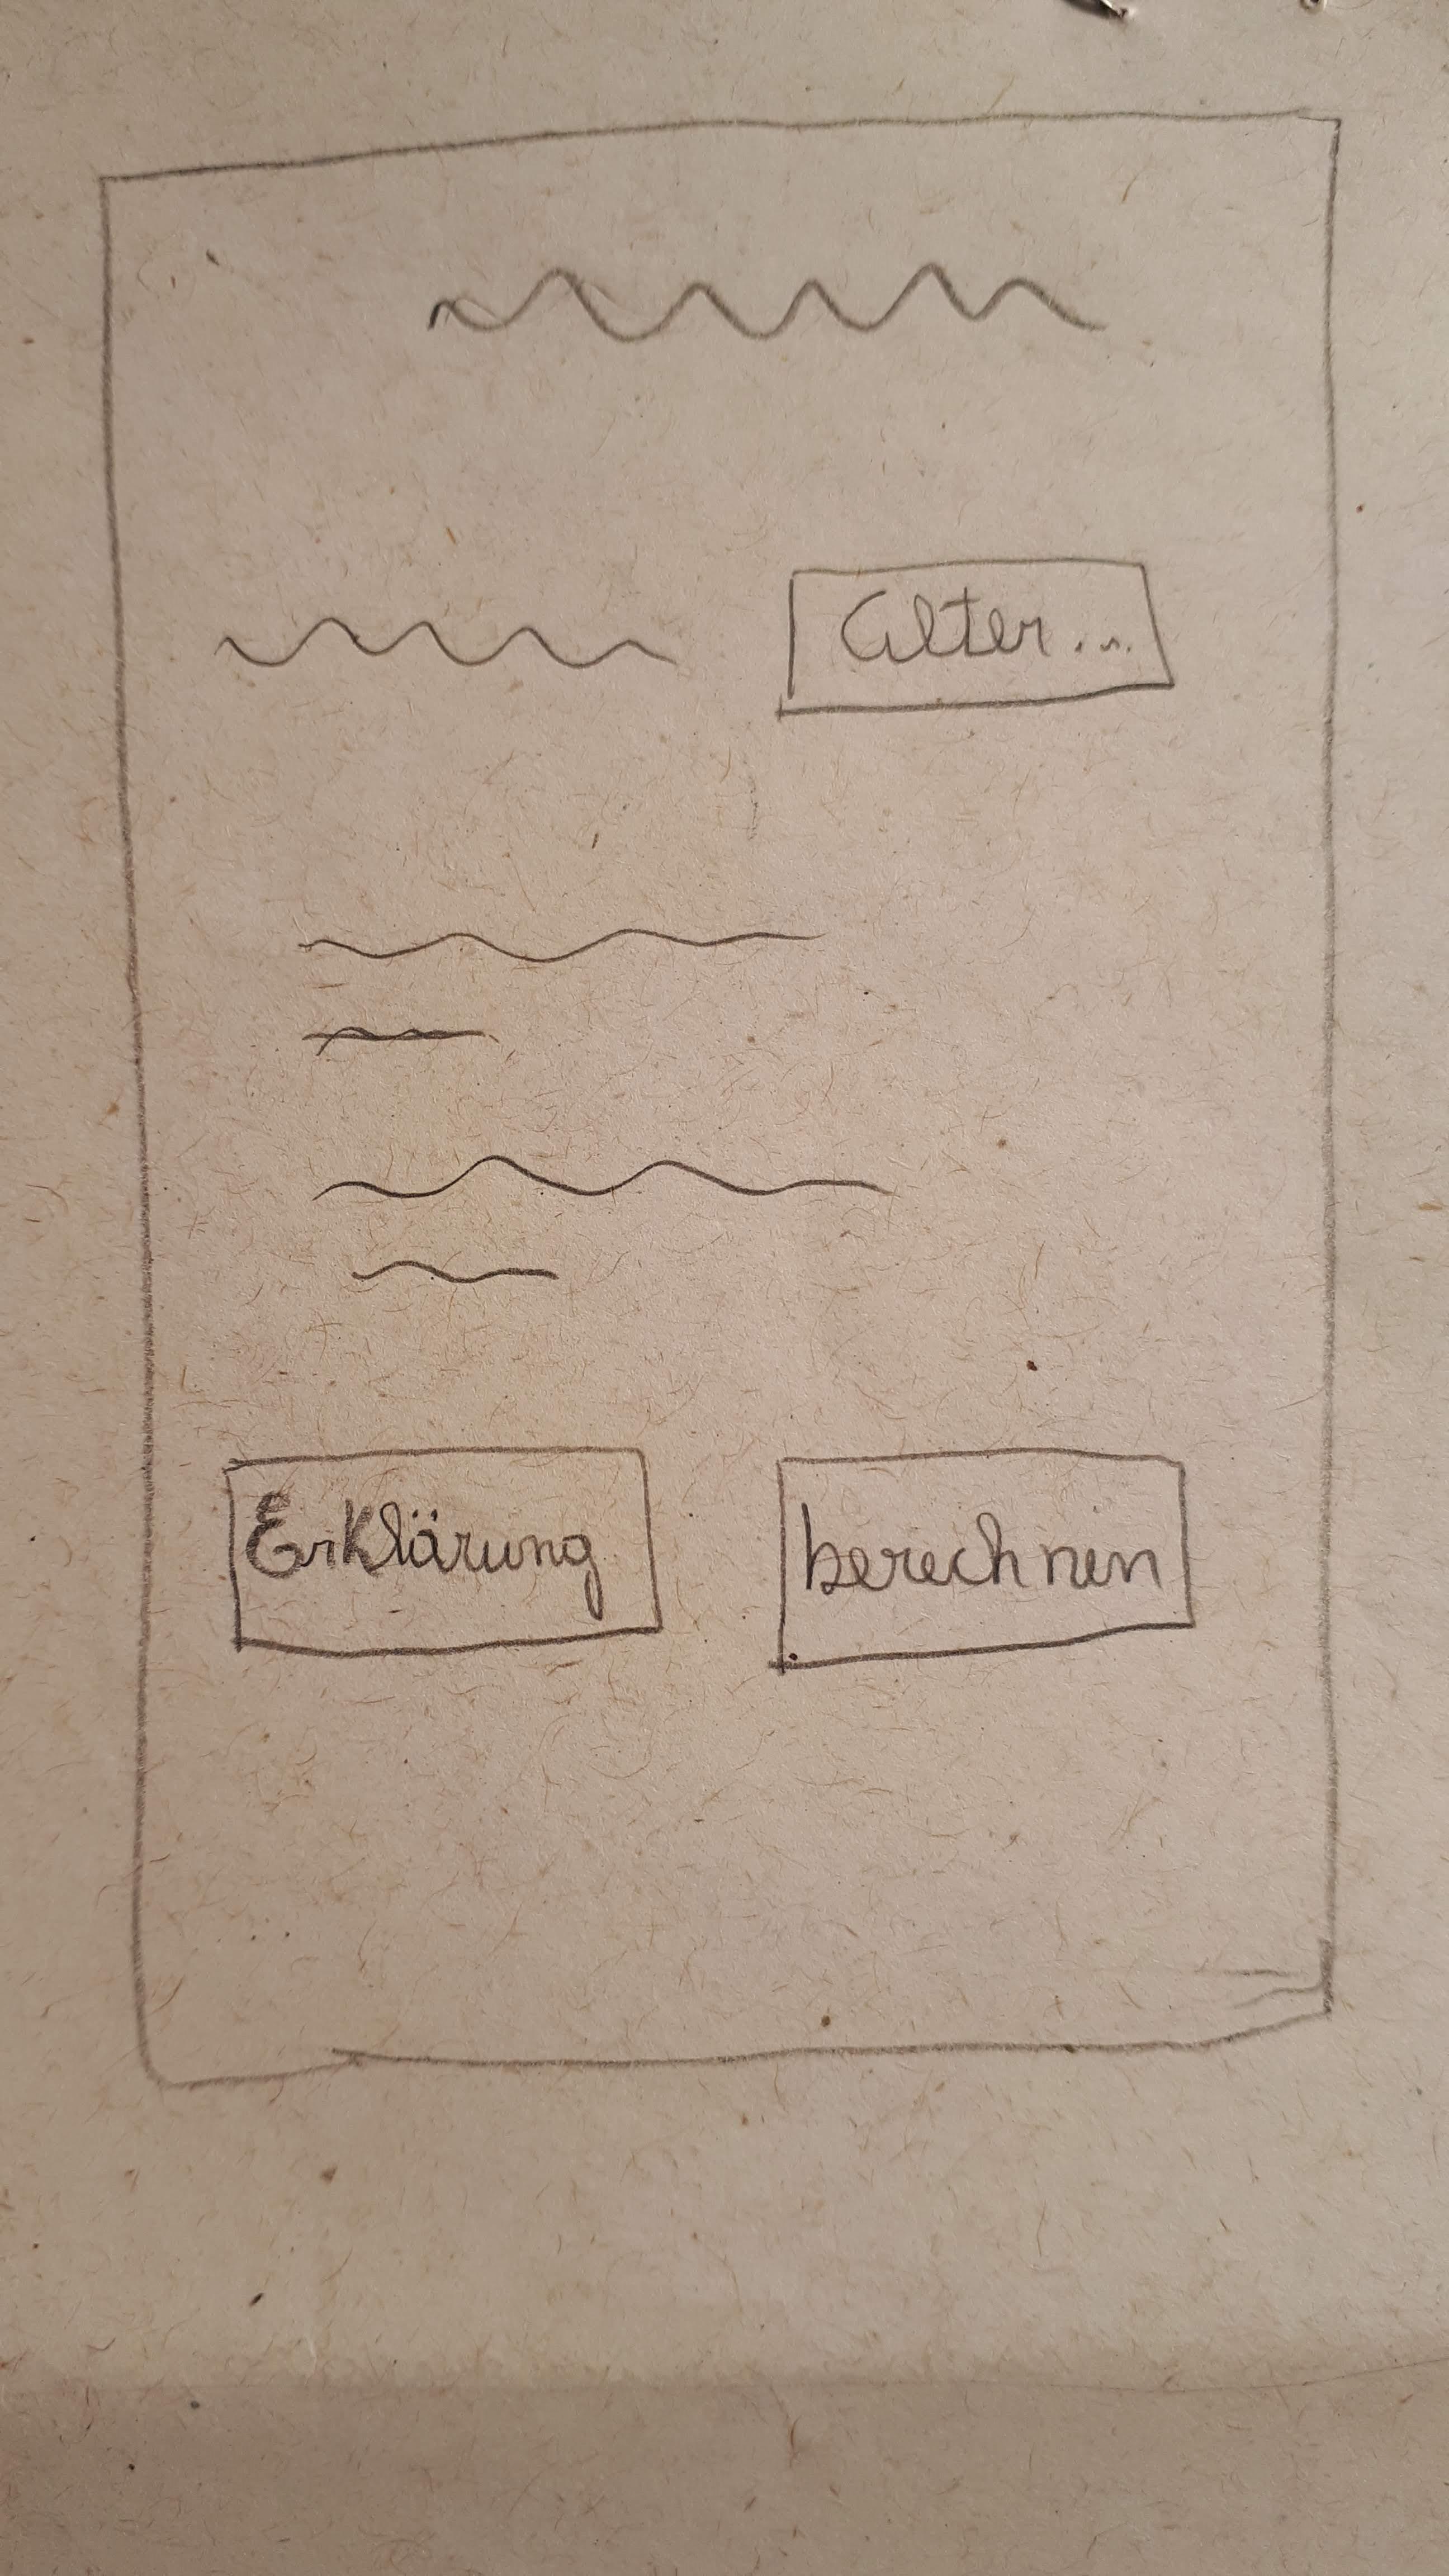 Alter...
Erklärung
berechnen